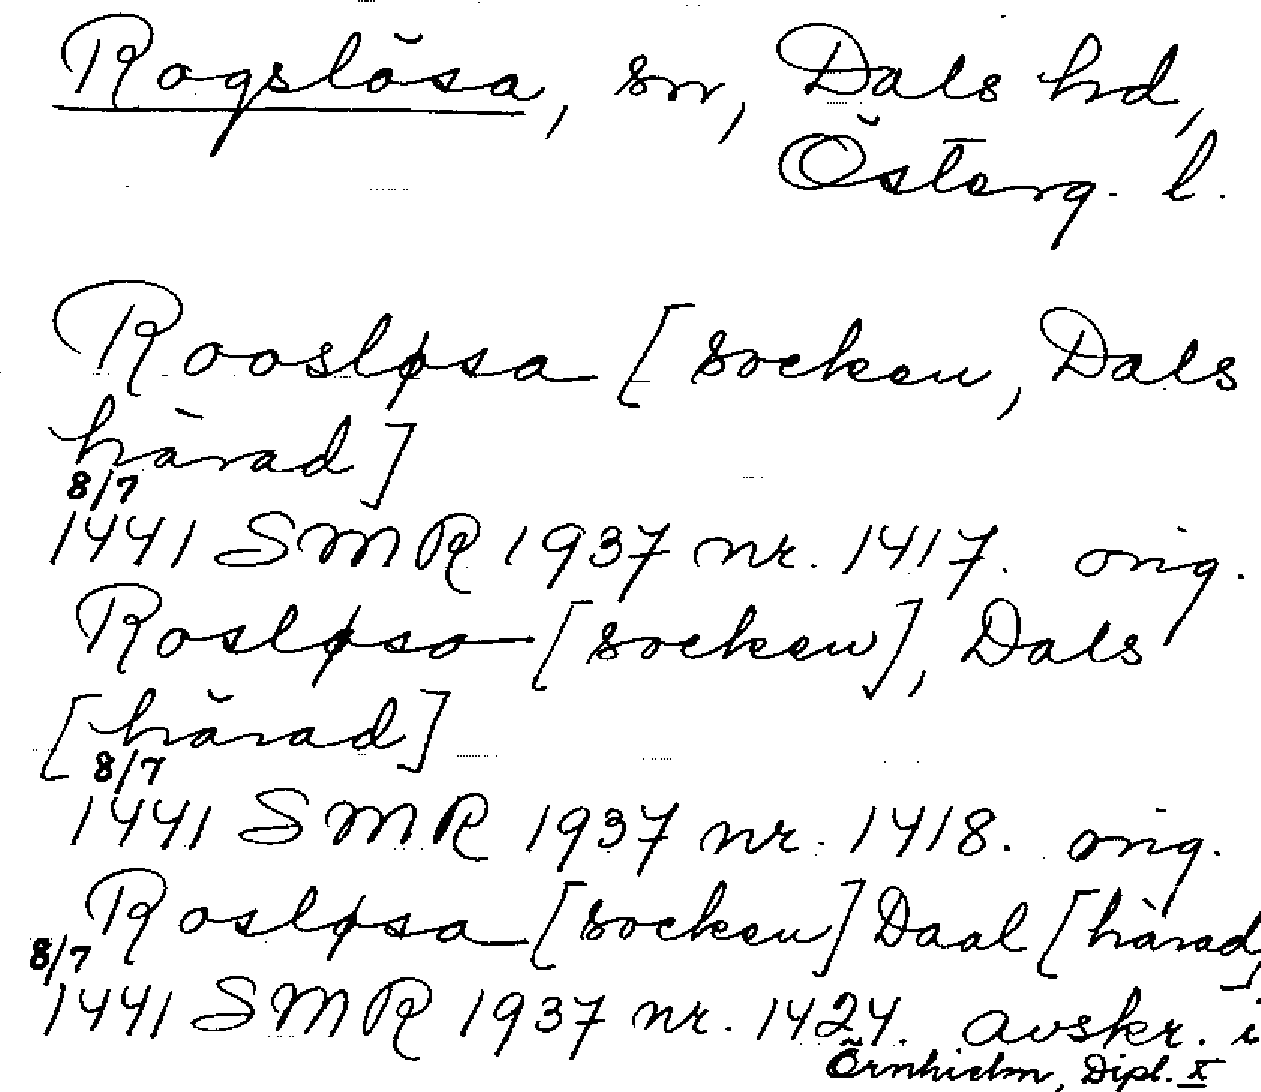 Rogslösa, sn, Dals hd,
Österg. l.
Roosløsa [socken, Dals
härad]
8/7
1441 SMR 1937 nr. 1417. orig.
Rosløsa [socken], Dals
[härad]
8/7
1441 SMR 1937 nr. 1418. orig.
Rosløsa [socken] Daal [härad]
8/7
1441 SMR 1937 nr. 1424. avskr. i
Örnhielm, Dipl. X